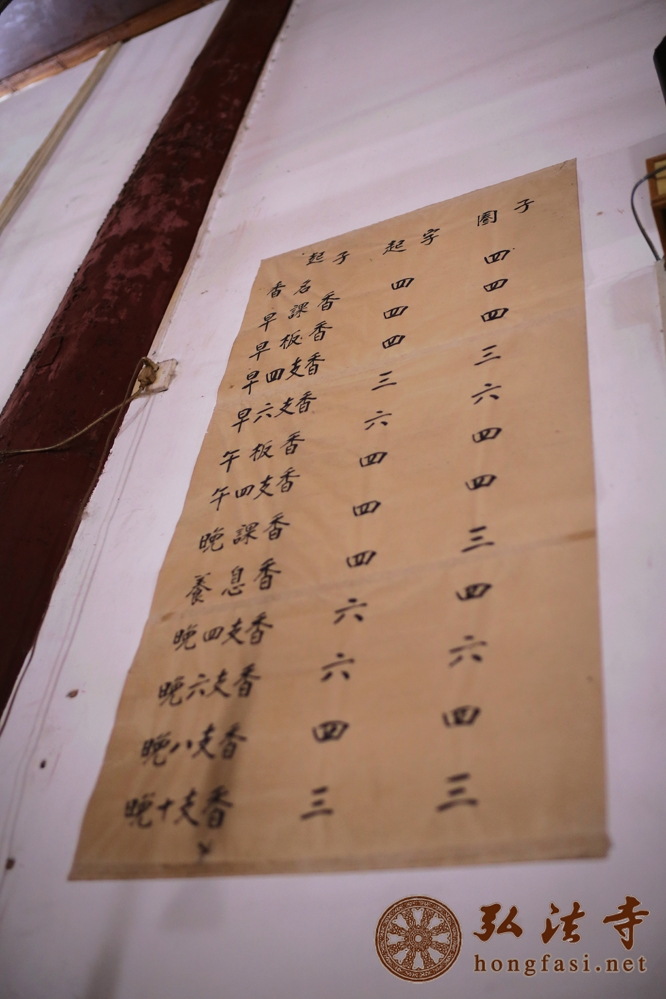 香名 起子 起字 圈子
早課香 四 四
早板香 四 四
早四支香 四 四
早六支香 三 三
午板香 六 六
午四支香 四 四
晚課香 四 四
養息香 四 三
晚四支香 六 四
晚六支香 六 六
晚八支香 四 四
晚十支香 三 三
弘法寺
hongfasi.net